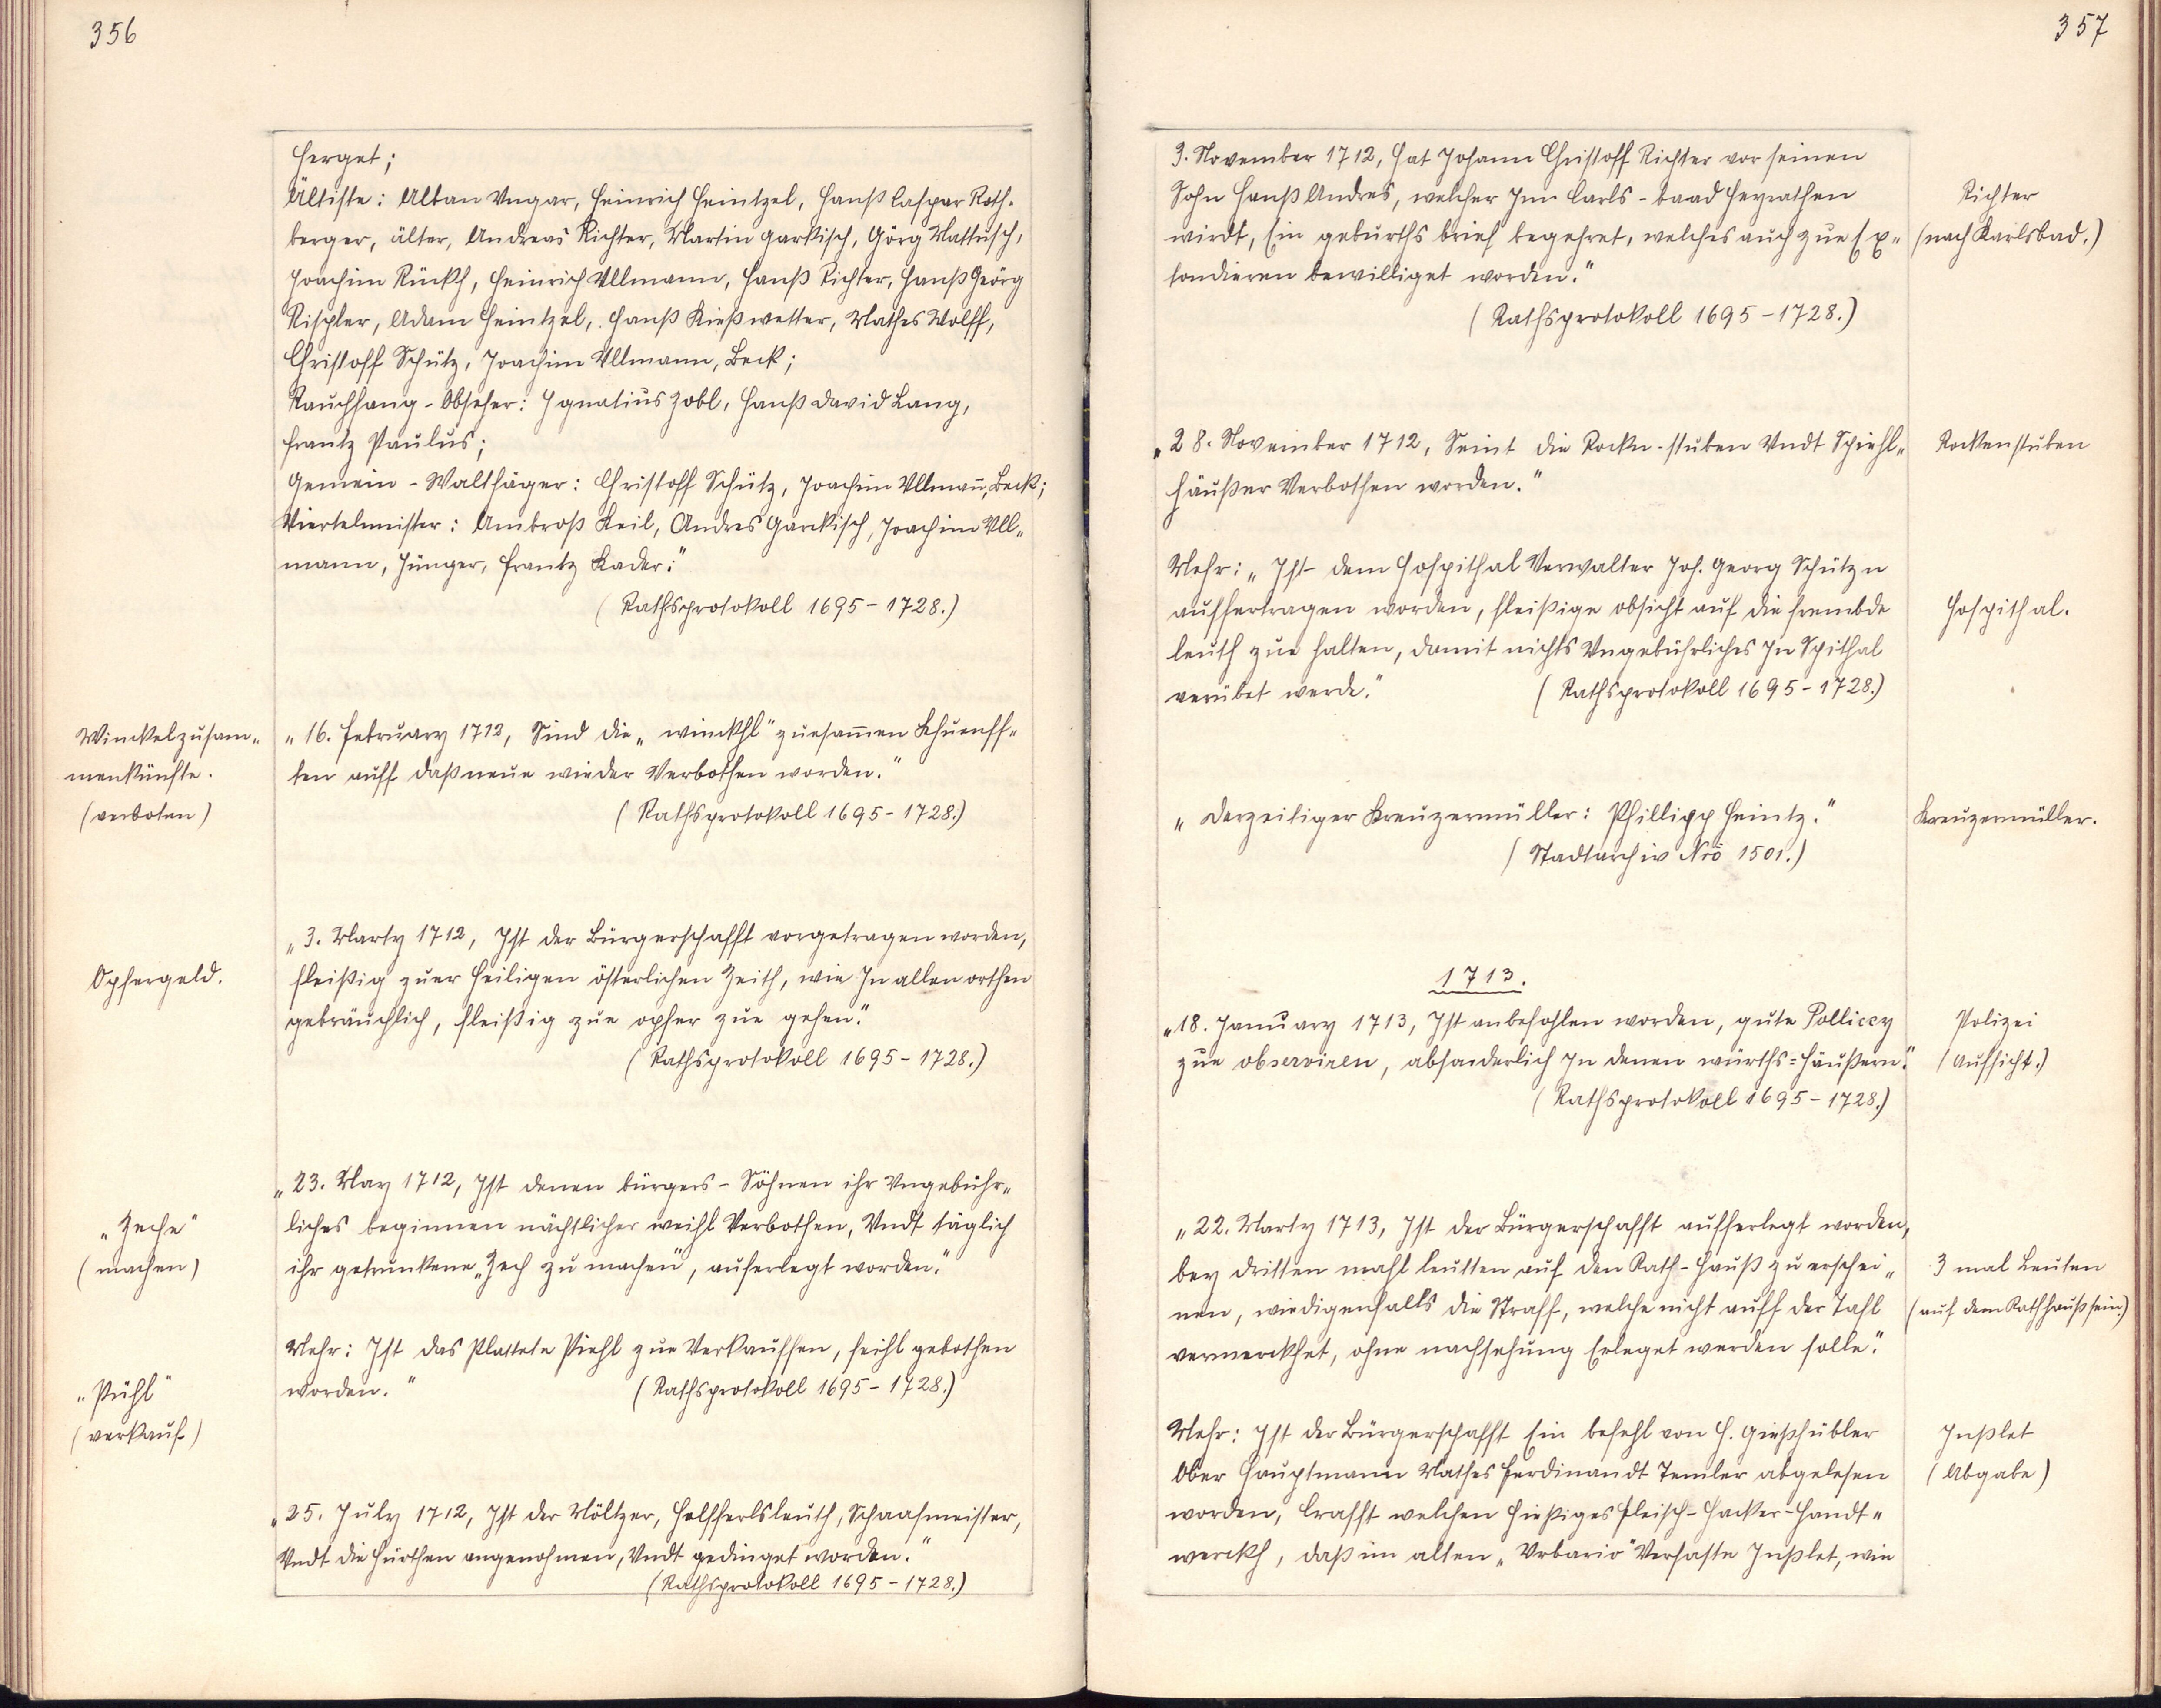 356
Herget;
Ältiste: Alban Vngar, Heinrich Heintzel, Hanß Caspar Roth-
berger, älter, Andreas Richter, Martin Garkisch, Görg Mattusch,
Joachim Rückh, Heinrich Vllmann, Hanß Richter, Hanß Geörg
Rischler, Adam Heintzel, Hanß Kießwetter, Mathes Wolff,
Christoff Schütz, Joachim Vllmann, Beck;
Rauchfang-Obseher: Ignatius Zobl, Hanß David Lang,
Frantz Paulus;
Gemein-Walthäger: Christoff Schütz, Joachim Vllman̄, Beck;
Viertelmeister: Ambroß Keil, Andres Garckisch, Joachim Vll„
mann, Jünger, Frantz Kader."
(Rathsprotokoll 1695-1728.)
Winckelzusam„
menkünfte.
(verboten)
„16. February 1712, Sind die „winckhl" zuesam̄en Khuenff„
ten auff daß neue wieder Verbothen worden."
(Rathsprotokoll 1695-1728.)
Opfergeld.
„3. Marty 1712, Ist der Bürgerschafft vorgetragen worden,
fleißig zuer heiligen österlichen Zeith, wie In allen orthen
gebräuchlich, fleißig zue opfer zue gehen."
(Rathsprotokoll 1695-1728.)
„Zeche"
(machen)
„23. May 1712, Ist denen bürgers-Söhnen ihr Vngebühr„
liches beginnen nächtlicher weihl Verbothen, Vndt täglich
ihr getrunkene „Zech zu machen", auferlegt worden."
„Pühl"
(verkauf)
Mehr: Ist das Plattete Piehl zue Verkauffen, feihl gebothen
worden." (Rathsprotokoll 1695-1728.)
„25. July 1712, Ist der Möltzer, Helfferlsleuth, Schaafmeister,
Vndt die Hürthen angenohmen, Vndt gedinget worden."
(Rathsprotokoll 1695-1728.)
357
3. November 1712, hat Johann Christoff Richter vor seinen
Sohn Hanß Andres, welcher Inn Carls-baad heyrathen
wirdt, Ein geburths brief begehret, welches auch zue Ex„
tondieren bewilliget worden."
(Rathsprotokoll 1695-1728.)
Richter
(nach Karlsbad.)
„28. November 1712, Seint die Rockn-stuben Vndt Spiehl„
häußer Verbothen worden."
Rockenstuben
Mehr: „Ist dem Hospithal Verwalter Joh. Georg Schützn
auffertragen worden, fleißige obsicht auf die frembde
leuth zue halten, damit nichts Vngebührliches In Spithal
verübet werde." (Rathsprotokoll 1695-1728.)
Hospithal.
„Derzeitiger Kreuzermüller: Phillipp Heintz."
(Stadtarchiv Nrö 1501.)
Kreuzermüller.
1713.
„18. January 1713, Ist anbefohlen worden, gute Pollicey
zue observiren, absonderlich In denen würths=häußern."
(Rathsprotokoll 1695-1728.)
Polizei
(Aufsicht.)
„22. Marty 1713, Ist der Bürgerschafft aufferlegt worden,
bey dritten mahl leutten auf den Rath-Hauß zu erschei„
nen, wiedigenfalls die Straff, welche nicht auff der Tafl
vermerckhet, ohne nachsehung Erleget werden solle."
3 mal Leuten
(auf dem Rathhauß sein.)
Mehr: Ist der Bürgerschafft Ein befehl von H. Gießhübler
Ober Hauptmann Mathes Ferdinandt Temler abgelesen
worden, Crafft welchen hießiges Fleisch-Hacker-Handt„
werckh, daß im alten „Vrbario" Verfaste Inßlet, wie
Inßlet
(Abgabe)